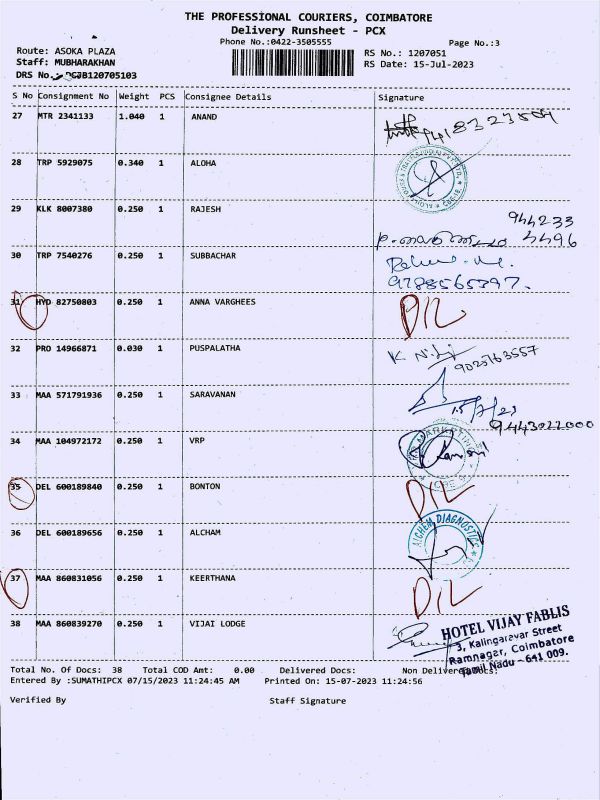 THE PROFESSIONAL COURIERS, COIMBATORE
Delivery Runsheet - PCX
Phone No.:0422-3505555
Page No.:3
Route: ASOKA PLAZA
RS No.: 1207051
Staff: MUBHARAKHAN
RS Date: 15-Jul-2023
DRS No.
S No Consignment No Weight PCS Consignee Details Signature
27 MTR 2341133 1.040 1 ANAND
28 TRP 5929075 0.340 1 ALOHA
29 KLK 8007380 0.250 1 RAJESH
944233
4496
30 TRP 7540276 0.250 1 SUBBACHAR
9788565397.
31 HYD 82750803 0.250 1 ANNA VARGHEES D/L
32 PRO 14966871 0.030 1 PUSPALATHA
9025763557
33 MAA 571791936 0.250 1 SARAVANAN
15/7/23
9443022000
34 MAA 104972172 0.250 1 VRP
35 DEL 600189840 0.250 1 BONTON D/L
36 DEL 600189656 0.250 1 ALCHAM ALCHEM DIAGNOSTICS
37 MAA 860831056 0.250 1 KEERTHANA D/L
38 MAA 860839270 0.250 1 VIJAI LODGE
HOTEL VIJAY FABLIS
3, Kalingaravar Street
Ramnagar, Coimbatore
Tamil Nadu - 641 009.
Total No. Of Docs: 38 Total COD Amt: 0.00 Delivered Docs: Non Delivered Docs:
Entered By :SUMATHIPCX 07/15/2023 11:24:45 AM Printed On: 15-07-2023 11:24:56
Verified By Staff Signature